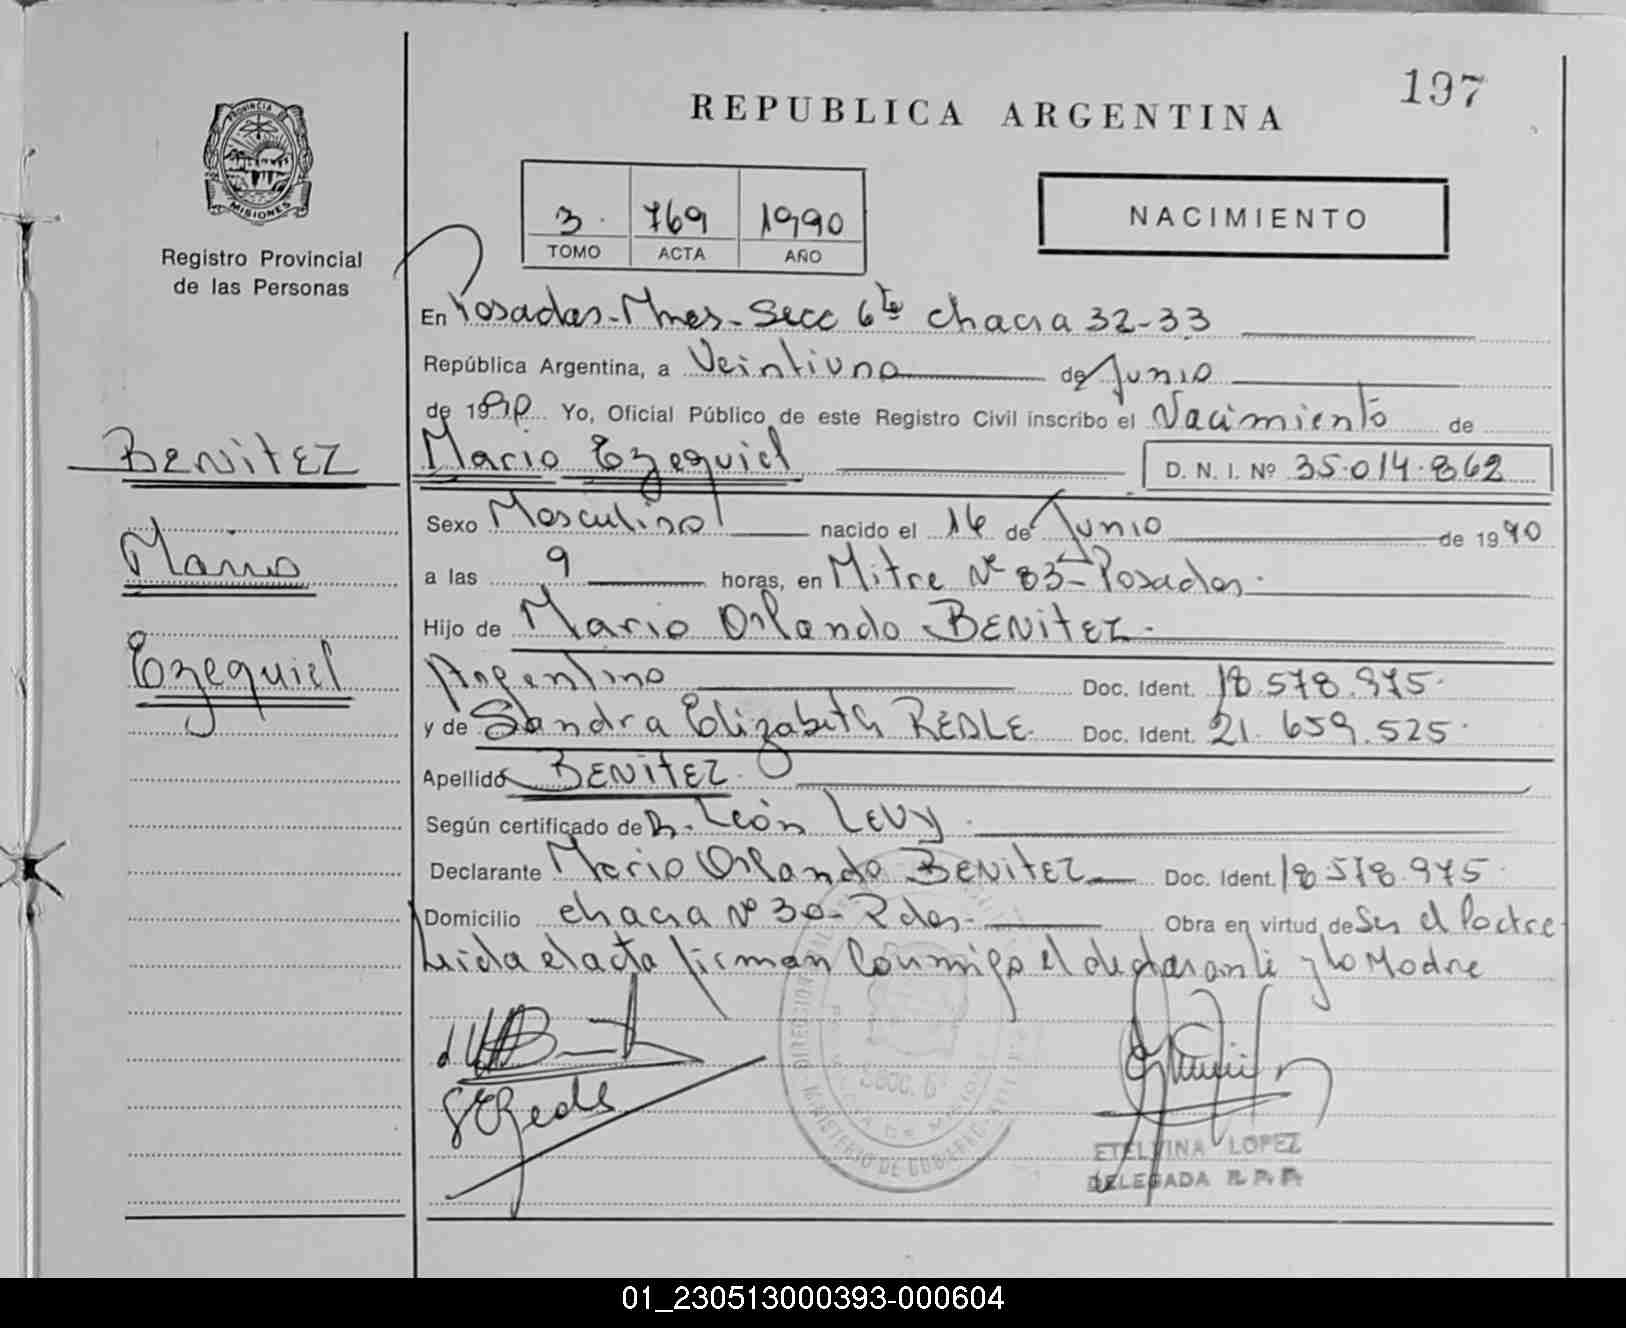 197
REPUBLICA ARGENTINA
PROVINCIA
MISIONES
Registro Provincial
de las Personas
3 769 1990
TOMO ACTA AÑO
NACIMIENTO
En Posadas-Mnes-Secc 6ta chacra 32-33
República Argentina, a Veintiuno de Junio
de 1990 Yo, Oficial Público de este Registro Civil inscribo el Nacimiento de
BENITEZ
Mario Ezequiel D. N. I. Nº 35.014.862
Sexo Masculino nacido el 14 de Junio de 1990
Mario
a las 9 horas, en Mitre Nº 83-Posadas.
Hijo de Mario Orlando BENITEZ.
Ezequiel
Argentino Doc. Ident. 18.578.975.
y de Sandra Elizabeth REDLE. Doc. Ident. 21.659.525.
Apellido BENITEZ.
Según certificado de Dr. León LEVY.
Declarante Mario Orlando BENITEZ Doc. Ident. 18.578.975
Domicilio chacra Nº 30-Pdas- Obra en virtud de Ser el Padre
Leida el acta firman Conmigo el declarante y la Madre
SECC. 6
MINISTERIO DE GOBIERNO
ETELVINA LOPEZ
DELEGADA R.P.P.
01_230513000393-000604